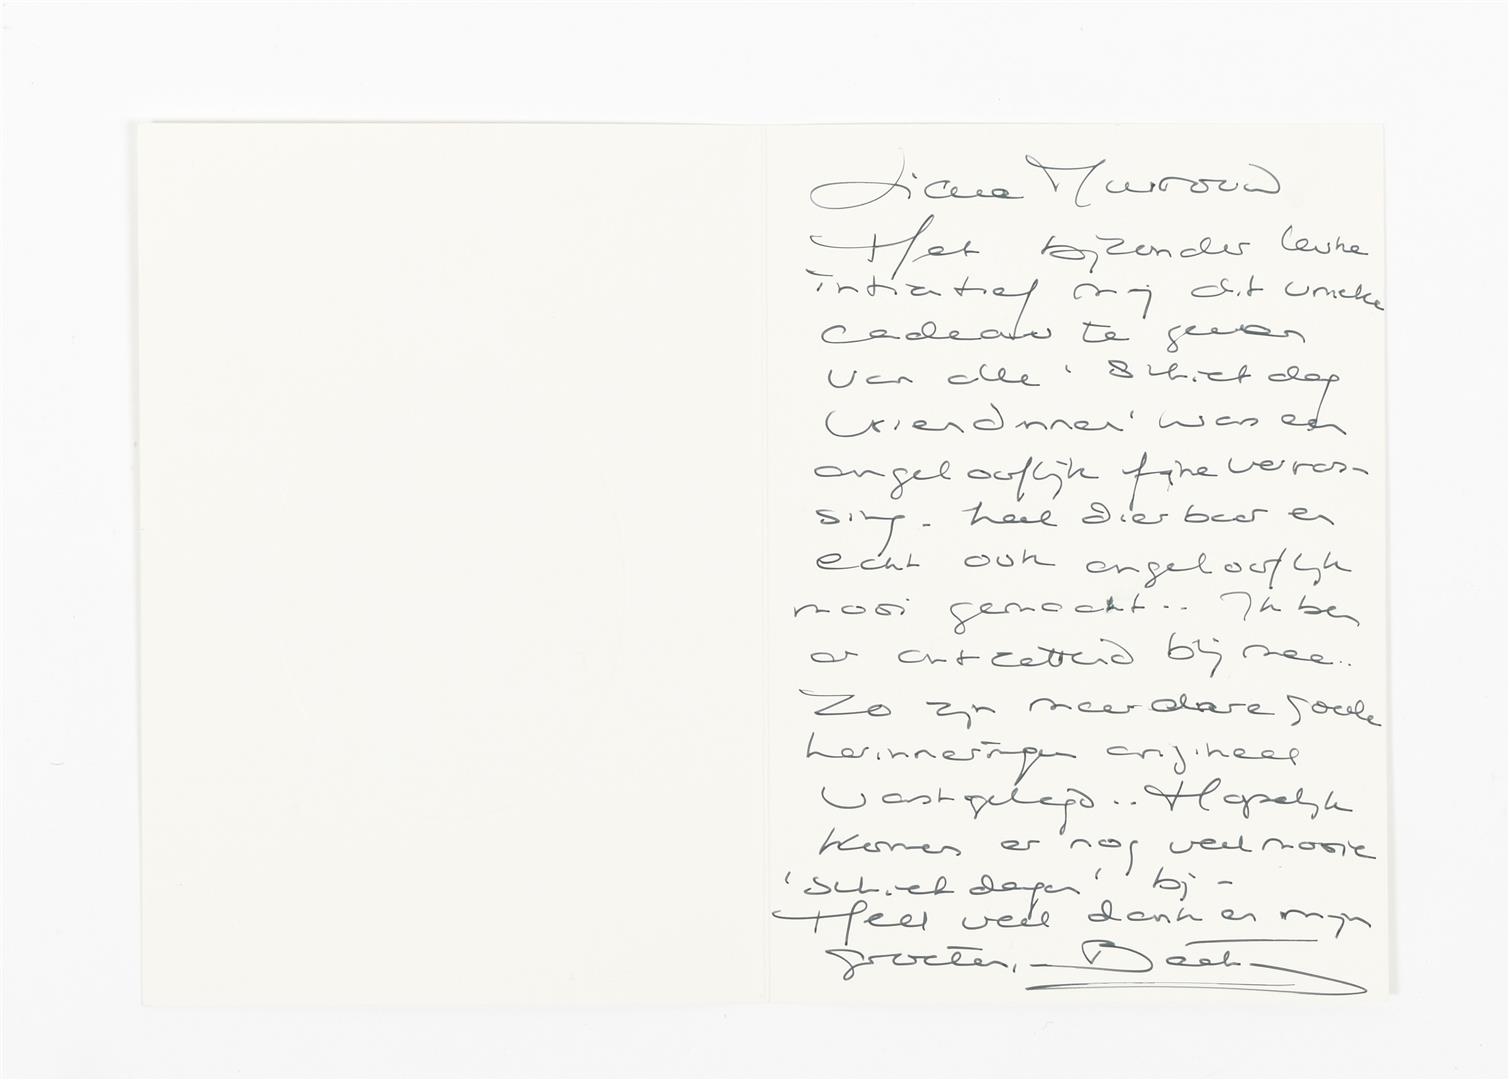 Het bijzonder leuke
intiatief mij dit unieke
cadeau te geven
van alle 'Schietdag
Vriendinnen' was een
ongelooflijk fijne verras-
sing - heel dierbaar en
echt ook ongelooflijk
mooi gemaakt.. Ik ben
er ontzettend blij mee..
Zo zijn meerdere goede
herinneringen origineel
vastgelegd.. Hopelijk
komen er nog veel mooie
'Schietdagen' bij -
Heel veel dank en mijn
groeten, -